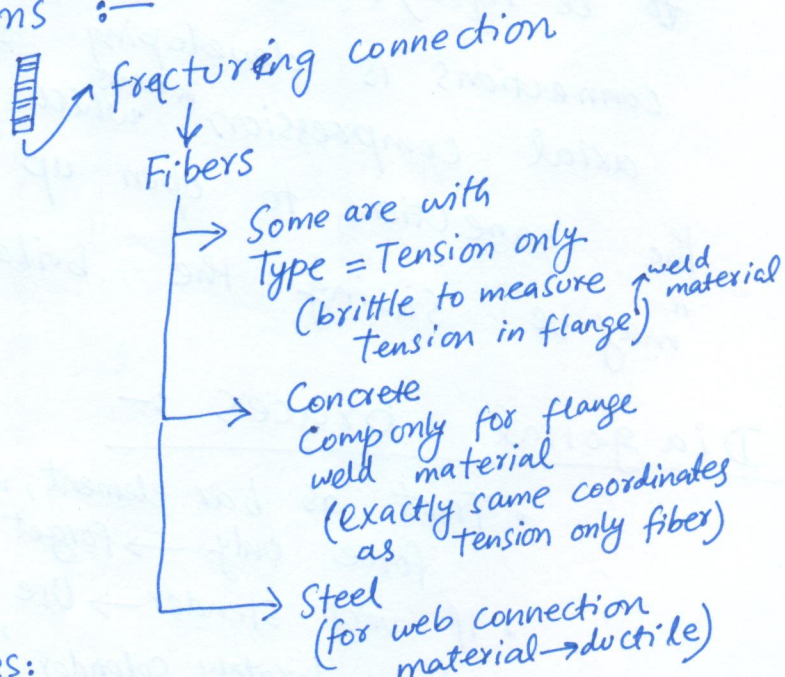 ns :—
fracturing connection
Fibers
Some are with
Type = Tension only
(brittle to measure ↑ weld
material
tension in flange)
Concrete
Comp only for flange
weld material
(exactly same coordinates
as tension only fiber)
Steel
(for web connection
material → ductile)
es: